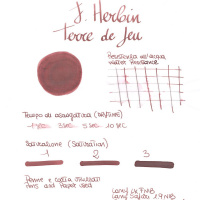 J. Herbin
Terre de Feu
Resistenza all'acqua
Water Resistance
Tempo di asciugatura (DRYTIME)
1 SEC 3 SEC 5 SEC 10 SEC
Saturazione (Saturation)
1 2 3
Penne e carta
Pens and Paper used
Lamy
Lamy Safari